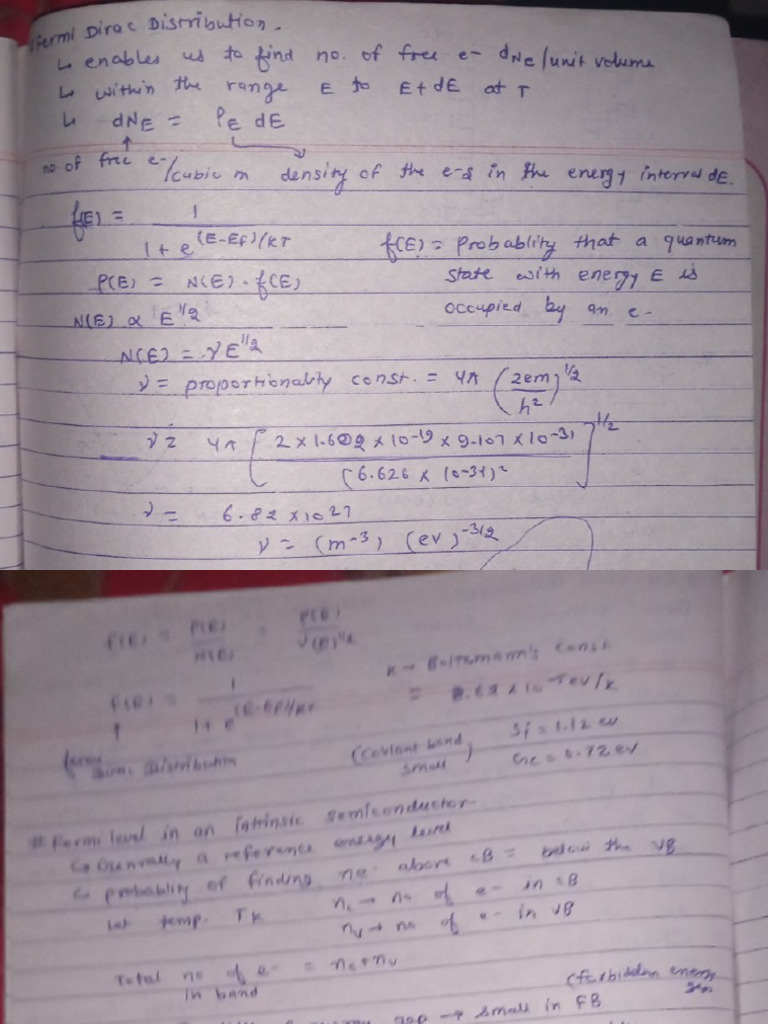 #Fermi Dirac Distribution.
↳ enables us to find no. of free e- dNE/unit volume
↳ within the range E to E+dE at T
↳ dNE = ρE dE
no of free e-/cubic m density of the e-s in the energy interval dE.
f(E) = 1 / 1 + e^(E-Ef)/KT
f(E) = Probablity that a quantum
P(E) = N(E) · f(E)
state with energy E is
N(E) ∝ E^1/2
occupied by an e-
N(E) = γE^1/2
γ = proportionality const. = 4π (2em / h²)^1/2
γ = 4π [2 × 1.602 × 10-19 × 9.107 × 10-31 / (6.626 × 10-34)²]^1/2
γ = 6.82 × 10 27
γ = (m-3) (ev)^-3/2
f(E) = P(E) / N(E) = P(E) / γ(E)^1/2
K → Boltzmann's const
f(E) = 1 / 1 + e^(E-Ef)/KT
= 8.62 × 10-5 ev/K
Fermi Dirac Distribution
(Covlant bond small)
Si = 1.12 ev
Ge = 0.72 ev
# Fermi level in an intrinsic semiconductor
↳ Genrally a reference energy level
↳ probablity of finding no above CB = below the VB
let temp. TK
nc → no of e- in CB
nv → no of e- in VB
Total no of e- = nc + nv
in band
(forbidden energy
gap → small in FB